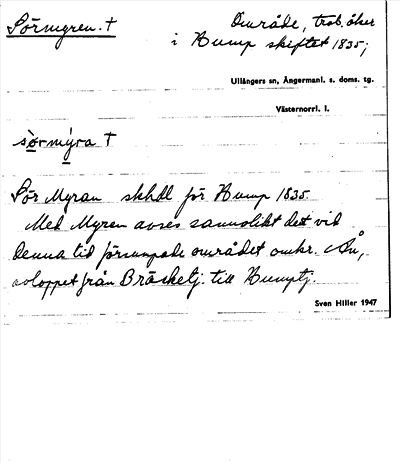 Sörmyren. †
Område, trol. åker
i Hump skiftet 1835;
Ullångers sn, Ångermanl. s. doms. tg.
Västernorrl. l.
sòrmýra †
Sör Myran skhdl för Hump 1835
Med Myren avses sannolikt det vid
denna tid försumpade området omkr. Ån,
avloppet från Bräsketj. till Humptj.
Sven Hiller 1947